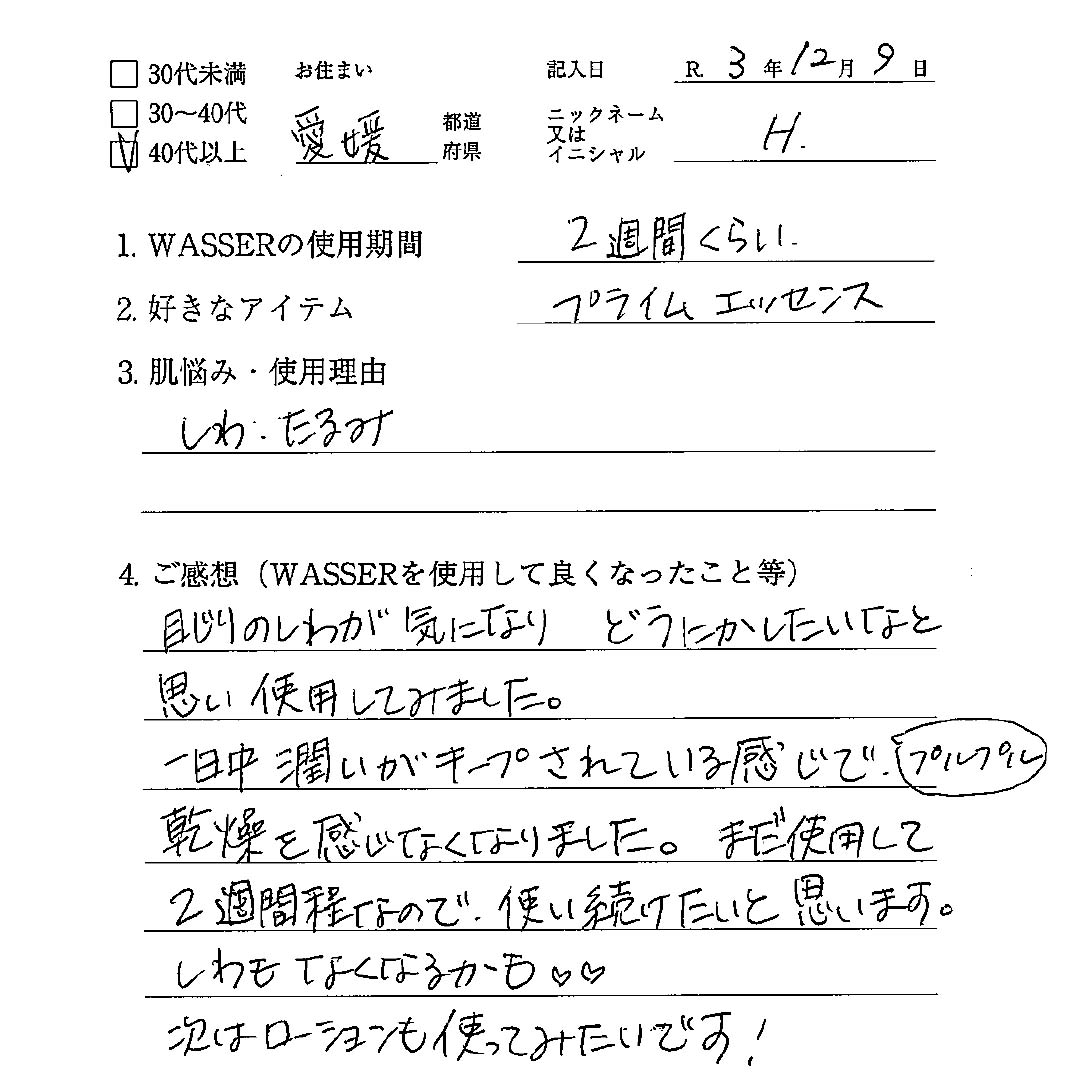 30代未満 お住まい 記入日 R. 3 年 12 月 9 日
30〜40代 愛媛 都道府県 ニックネーム又はイニシャル H.
40代以上
1. WASSERの使用期間 2週間くらい.
2. 好きなアイテム プライム エッセンス
3. 肌悩み・使用理由
しわ・たるみ
4. ご感想（WASSERを使用して良くなったこと等）
目じりのしわが気になり どうにかしたいなと
思い使用してみました。
一日中潤いがキープされている感じで、プルプル
乾燥を感じなくなりました。 まだ使用して
2週間程なので、使い続けたいと思います。
しわもなくなるかも♡♡
次はローションも使ってみたいです!